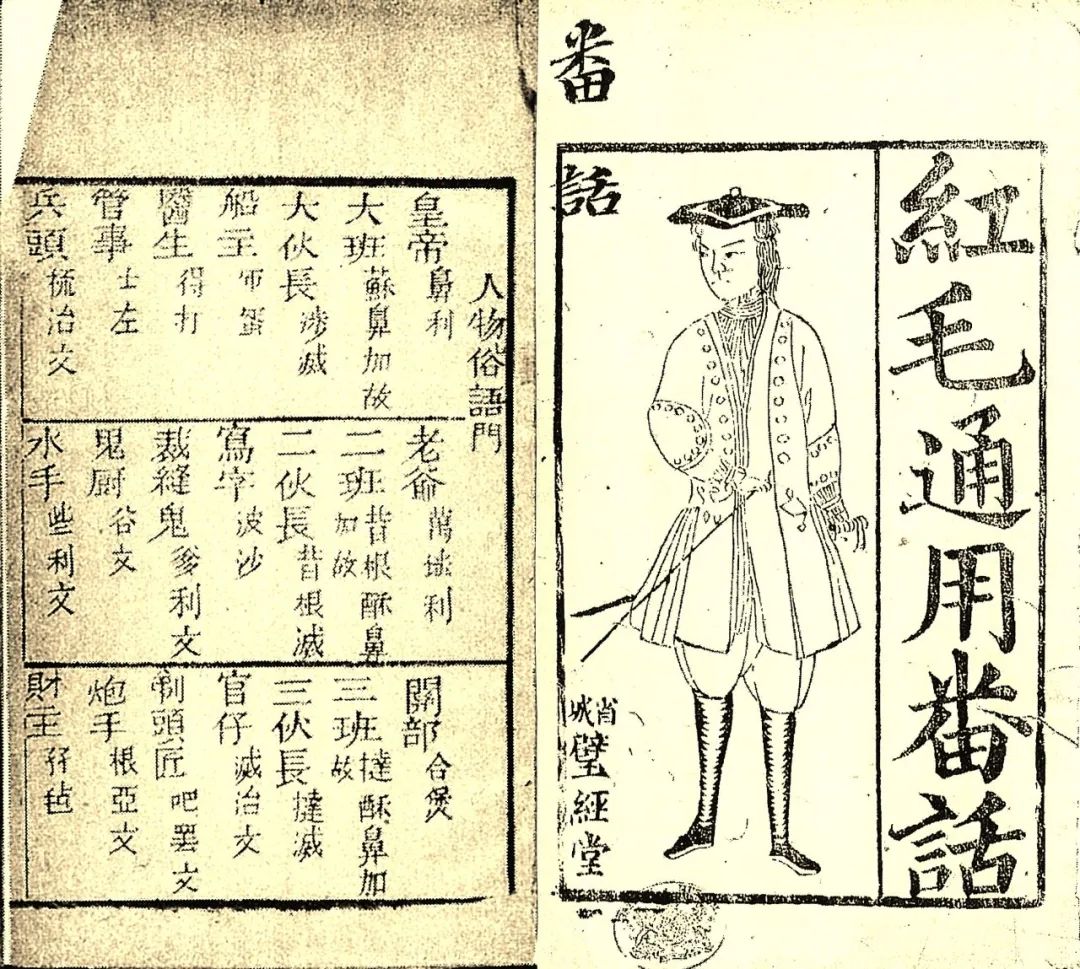 紅毛通用番話
番話
省城
璧經堂
人物俗語門
皇帝 鼻利
大班 蘇鼻加故
大伙長 涉滅
船主
醫生 得打
管事 士左
兵頭 梳治文
老爺 萬 利
二班 昔根酥鼻加故
二伙長 昔根滅
寫字 波沙
裁縫鬼 爹利文
鬼厨 谷文
水手 些利文
關部 合煲
三班 撻酥鼻加故
三伙長 撻滅
官仔 滅治文
剃頭匠 吧罢文
炮手 根亞文
財主 孖毡